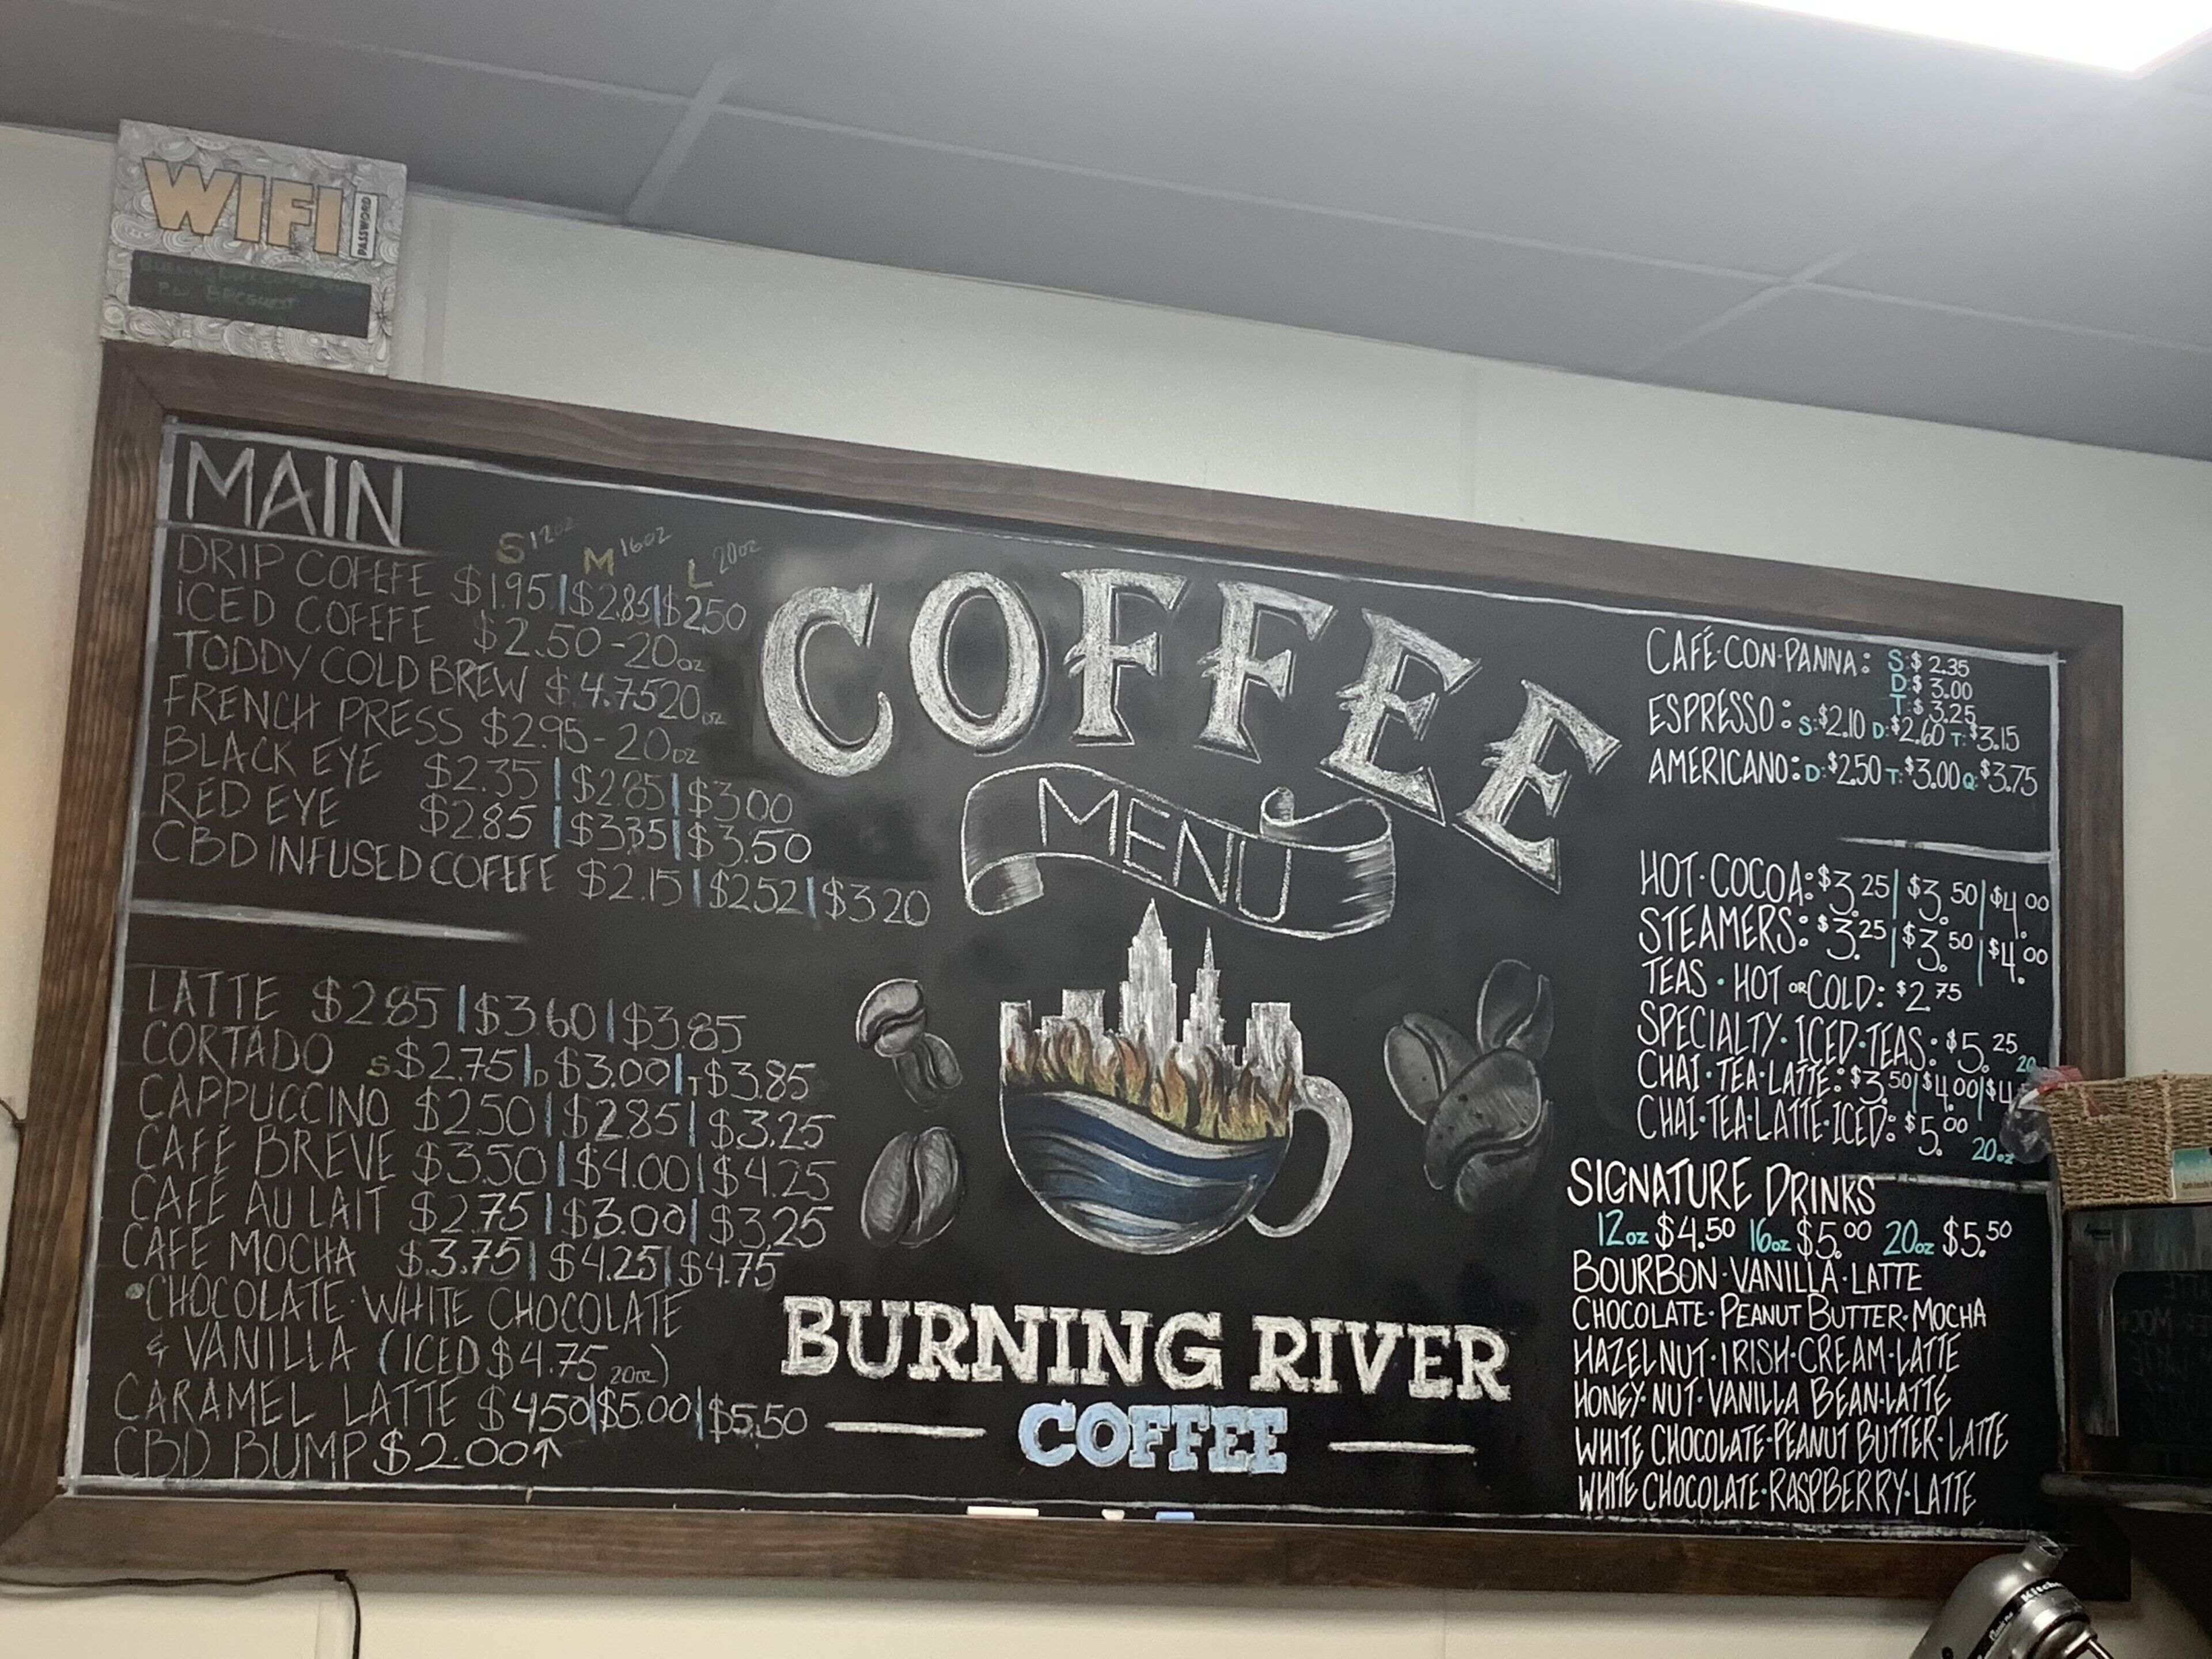 WIFI
PASSWORD
P.W. BRCGUEST
MAIN
S 12oz M 16oz L 20oz
DRIP COFEFE $1.95|$2.85|$2.50
ICED COFEFE $2.50-20oz
TODDY COLD BREW $4.75 20oz
FRENCH PRESS $2.95-20oz
BLACK EYE $2.35|$2.85|$3.00
RED EYE $2.85|$3.35|$3.50
CBD INFUSED COFEFE $2.15|$2.52|$3.20
LATTE $2.85|$3.60|$3.85
CORTADO S $2.75|D $3.00|T $3.85
CAPPUCCINO $2.50|$2.85|$3.25
CAFÉ BREVE $3.50|$4.00|$4.25
CAFÉ AU LAIT $2.75|$3.00|$3.25
CAFÉ MOCHA $3.75|$4.25|$4.75
•CHOCOLATE·WHITE CHOCOLATE
& VANILLA (ICED $4.75 20oz)
CARAMEL LATTE $4.50|$5.00|$5.50
CBD BUMP $2.00↑
COFFEE
MENU
BURNING RIVER
COFFEE
CAFÉ·CON·PANNA: S:$2.35
D:$3.00
T:$3.25
ESPRESSO: S:$2.10 D:$2.60 T:$3.15
AMERICANO: D:$2.50 T:$3.00 Q:$3.75
HOT·COCOA: $3.25|$3.50|$4.00
STEAMERS: $3.25|$3.50|$4.00
TEAS·HOT OR COLD: $2.75
SPECIALTY·ICED·TEAS: $5.25 20
CHAI·TEA·LATTE: $3.50|$4.00|$4
CHAI·TEA·LATTE·ICED: $5.00 20oz
SIGNATURE DRINKS
12oz $4.50 16oz $5.00 20oz $5.50
BOURBON·VANILLA·LATTE
CHOCOLATE·PEANUT BUTTER·MOCHA
HAZELNUT·IRISH·CREAM·LATTE
HONEY·NUT·VANILLA BEAN·LATTE
WHITE CHOCOLATE·PEANUT BUTTER·LATTE
WHITE CHOCOLATE·RASPBERRY·LATTE